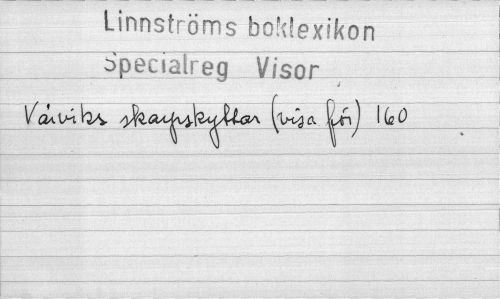 Linnströms boklexikon
Specialreg Visor
skarpskyttar (visa för) 160